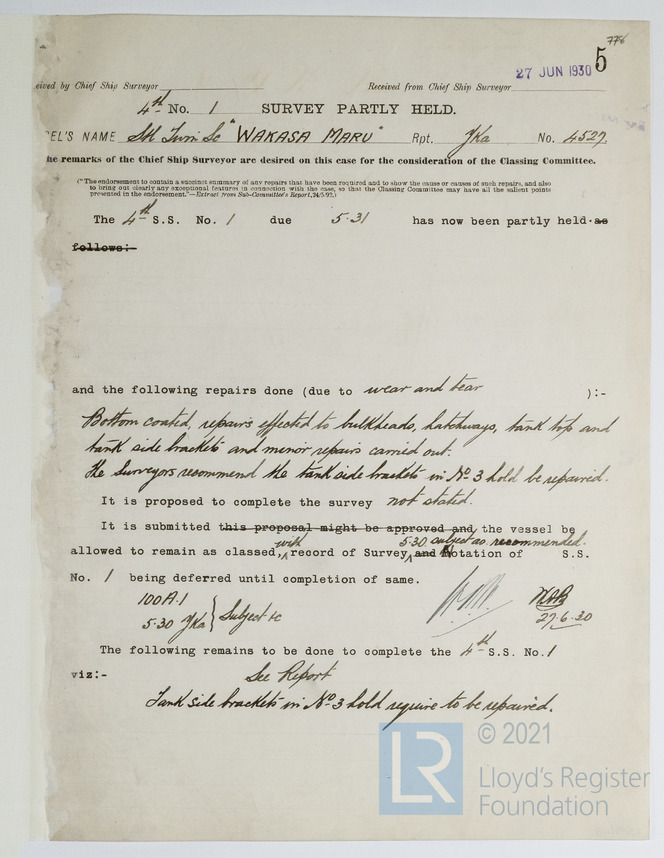 776
27 JUN 1930 5
eived by Chief Ship Surveyor Received from Chief Ship Surveyor
4th No. 1 SURVEY PARTLY HELD.
EL'S NAME Twin Sc "WAKASA MARU" Rpt. Yka No. 4527.
he remarks of the Chief Ship Surveyor are desired on this case for the consideration of the Classing Committee.
("The endorsement to contain a succinct summary of any repairs that have been required and to show the cause or causes of such repairs, and also
to bring out clearly any exceptional features in connection with the case, so that the Classing Committee may have all the salient points
presented in the endorsement."—Extract from Sub-Committee's Report, 24/5/92.)
The 4th S.S. No. 1 due 5.31 has now been partly held. as
follows:-
and the following repairs done (due to wear and tear ):-
Bottom coated, repairs effected to bulkheads, hatchways, tank top and
tank side brackets and minor repairs carried out.
The Surveyors recommend the tank side brackets in No 3 hold be repaired.
It is proposed to complete the survey not stated.
It is submitted this proposal might be approved and the vessel be
with 5.30 subject as recommended.
allowed to remain as classed, record of Survey and Notation of S.S.
No. 1 being deferred until completion of same.
100A.1
5.30 Yka } Subject &c
27.6.30
The following remains to be done to complete the 4th S.S. No. 1
viz:- See Report
Tank side brackets in No 3 hold require to be repaired.
LR © 2021
Lloyd's Register
Foundation